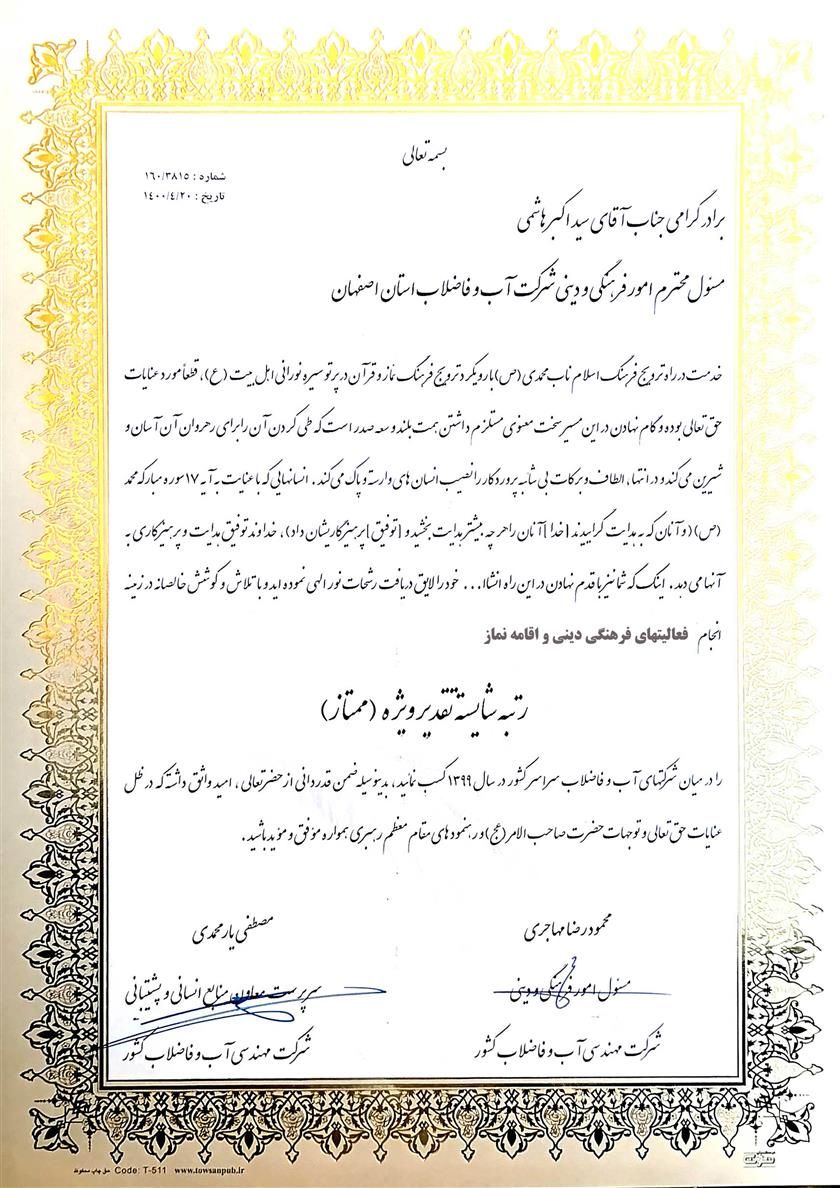 بسمه تعالی
شماره : ١٦٠/٣٨١٥
تاریخ : ١٤٠٠/٤/٢٠
برادر گرامی جناب آقای سید اکبر هاشمی
مسئول محترم امور فرهنگی و دینی شرکت آب و فاضلاب استان اصفهان
خدمت در راه ترویج فرهنگ اسلام ناب محمدی (ص) با رویکرد ترویج فرهنگ نماز و قرآن در پرتو سیره نورانی اهل بیت (ع) ، قطعاً مورد عنایات
حق تعالی بوده و گام نهادن در این مسیر سخت معنوی مستلزم داشتن همت بلند و سعه صدر است که طی کردن آن را برای رهروان آن آسان و
شیرین می کند و در انتها ، الطاف و برکات بی شائبه پروردگار را نصیب انسان های وارسته و پاک می کند . انسانهایی که با عنایت به آیه ۱۷ سوره مبارکه محمد
(ص) (و آنان که به هدایت گراییدند [خدا] آنان را هر چه بیشتر هدایت بخشید و [توفیق] پرهیزکاریشان داد) ، خداوند توفیق هدایت و پرهیزکاری به
آنها می دهد . اینک که شما نیز با قدم نهادن در این راه انشاا... خود را لایق دریافت رشحات نور الهی نموده اید و با تلاش و کوشش خالصانه در زمینه
انجام فعالیتهای فرهنگی دینی و اقامه نماز
رتبه شایسته تقدیر ویژه (ممتاز)
را در میان شرکتهای آب و فاضلاب سراسر کشور در سال ۱۳۹۹ کسب نمائید ، بدینوسیله ضمن قدردانی از حضرتعالی ، امید واثق داشته که در ظل
عنایات حق تعالی و توجهات حضرت صاحب الامر (عج) و رهنمودهای مقام معظم رهبری همواره موفق و مؤید باشید .
محمودرضا مهاجری
مسئول امور فرهنگی و دینی
شرکت مهندسی آب و فاضلاب کشور
مصطفی یارمحمدی
سرپرست معاونت منابع انسانی و پشتیبانی
شرکت مهندسی آب و فاضلاب کشور
حق چاپ محفوظ Code: T-511 www.towsanpub.ir